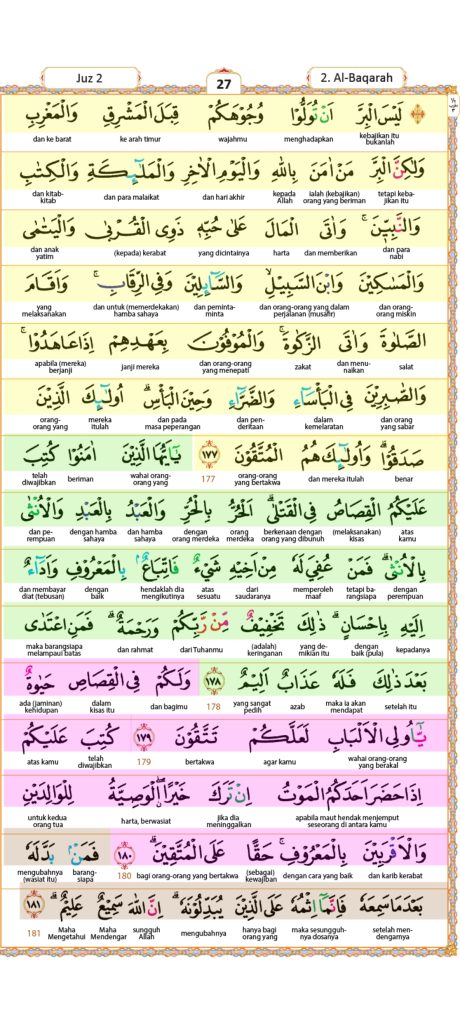 Juz 2
27
2. Al-Baqarah
لَيْسَ الْبِرَّ اَنْ تُوَلُّوْا وُجُوْهَكُمْ قِبَلَ الْمَشْرِقِ وَالْمَغْرِبِ
kebajikan itu bukanlah menghadapkan wajahmu ke arah timur dan ke barat
وَلٰكِنَّ الْبِرَّ مَنْ اٰمَنَ بِاللّٰهِ وَالْيَوْمِ الْاٰخِرِ وَالْمَلٰۤىِٕكَةِ وَالْكِتٰبِ
tetapi kebajikan itu ialah (kebajikan) orang yang beriman kepada Allah dan hari akhir dan para malaikat dan kitab-kitab
وَالنَّبِيّٖنَۚ وَاٰتَى الْمَالَ عَلٰى حُبِّهٖ ذَوِى الْقُرْبٰى وَالْيَتٰمٰى
dan para nabi dan memberikan harta yang dicintainya (kepada) kerabat dan anak yatim
وَالْمَسٰكِيْنَ وَابْنَ السَّبِيْلِۙ وَالسَّاۤىِٕلِيْنَ وَفِى الرِّقَابِۚ وَاَقَامَ
dan orang-orang miskin dan orang-orang yang dalam perjalanan (musafir) dan peminta-minta dan untuk (memerdekakan) hamba sahaya yang melaksanakan
الصَّلٰوةَ وَاٰتَى الزَّكٰوةَۚ وَالْمُوْفُوْنَ بِعَهْدِهِمْ اِذَا عَاهَدُوْاۚ
salat dan menunaikan zakat dan orang-orang yang menepati janji mereka apabila (mereka) berjanji
وَالصّٰبِرِيْنَ فِى الْبَأْسَاۤءِ وَالضَّرَّاۤءِ وَحِيْنَ الْبَأْسِۗ اُولٰۤىِٕكَ الَّذِيْنَ
dan orang yang sabar dalam kemelaratan dan penderitaan dan pada masa peperangan mereka itulah orang-orang yang
صَدَقُوْاۗ وَاُولٰۤىِٕكَ هُمُ الْمُتَّقُوْنَ ١٧٧ يٰٓاَيُّهَا الَّذِيْنَ اٰمَنُوْا كُتِبَ
benar dan mereka itulah orang-orang yang bertakwa 177 wahai orang-orang yang beriman telah diwajibkan
عَلَيْكُمُ الْقِصَاصُ فِى الْقَتْلٰىۗ اَلْحُرُّ بِالْحُرِّ وَالْعَبْدُ بِالْعَبْدِ وَالْاُنْثٰى
atas kamu (melaksanakan) kisas berkenaan dengan orang yang dibunuh orang merdeka dengan orang merdeka dan hamba sahaya dengan hamba sahaya dan perempuan
بِالْاُنْثٰىۗ فَمَنْ عُفِيَ لَهٗ مِنْ اَخِيْهِ شَيْءٌ فَاتِّبَاعٌۢ بِالْمَعْرُوْفِ وَاَدَاۤءٌ
dengan perempuan tetapi barangsiapa memperoleh maaf dari saudaranya atas sesuatu hendaklah dia mengikutinya dengan baik dan membayar diat (tebusan)
اِلَيْهِ بِاِحْسَانٍۗ ذٰلِكَ تَخْفِيْفٌ مِّنْ رَّبِّكُمْ وَرَحْمَةٌۗ فَمَنِ اعْتَدٰى
kepadanya dengan baik (pula) yang demikian itu (adalah) keringanan dari Tuhanmu dan rahmat maka barangsiapa melampaui batas
بَعْدَ ذٰلِكَ فَلَهٗ عَذَابٌ اَلِيْمٌ ١٧٨ وَلَكُمْ فِى الْقِصَاصِ حَيٰوةٌ
setelah itu maka ia akan mendapat azab yang sangat pedih 178 dan bagimu dalam kisas itu ada (jaminan) kehidupan
يّٰٓاُولِى الْاَلْبَابِ لَعَلَّكُمْ تَتَّقُوْنَ ١٧٩ كُتِبَ عَلَيْكُمْ
wahai orang-orang yang berakal agar kamu bertakwa 179 telah diwajibkan atas kamu
اِذَا حَضَرَ اَحَدَكُمُ الْمَوْتُ اِنْ تَرَكَ خَيْرًاۖ الْوَصِيَّةُ لِلْوَالِدَيْنِ
apabila maut hendak menjemput seseorang di antara kamu jika dia meninggalkan harta, berwasiat untuk kedua orang tua
وَالْاَقْرَبِيْنَ بِالْمَعْرُوْفِۚ حَقًّا عَلَى الْمُتَّقِيْنَۗ ١٨٠ فَمَنْۢ بَدَّلَهٗ
dan karib kerabat dengan cara yang baik (sebagai) kewajiban bagi orang-orang yang bertakwa 180 barangsiapa mengubahnya (wasiat itu)
بَعْدَمَا سَمِعَهٗ فَاِنَّمَآ اِثْمُهٗ عَلَى الَّذِيْنَ يُبَدِّلُوْنَهٗۗ اِنَّ اللّٰهَ سَمِيْعٌ عَلِيْمٌۗ ١٨١
setelah mendengarnya maka sesungguhnya dosanya hanya bagi orang yang mengubahnya sungguh Allah Maha Mendengar Maha Mengetahui 181